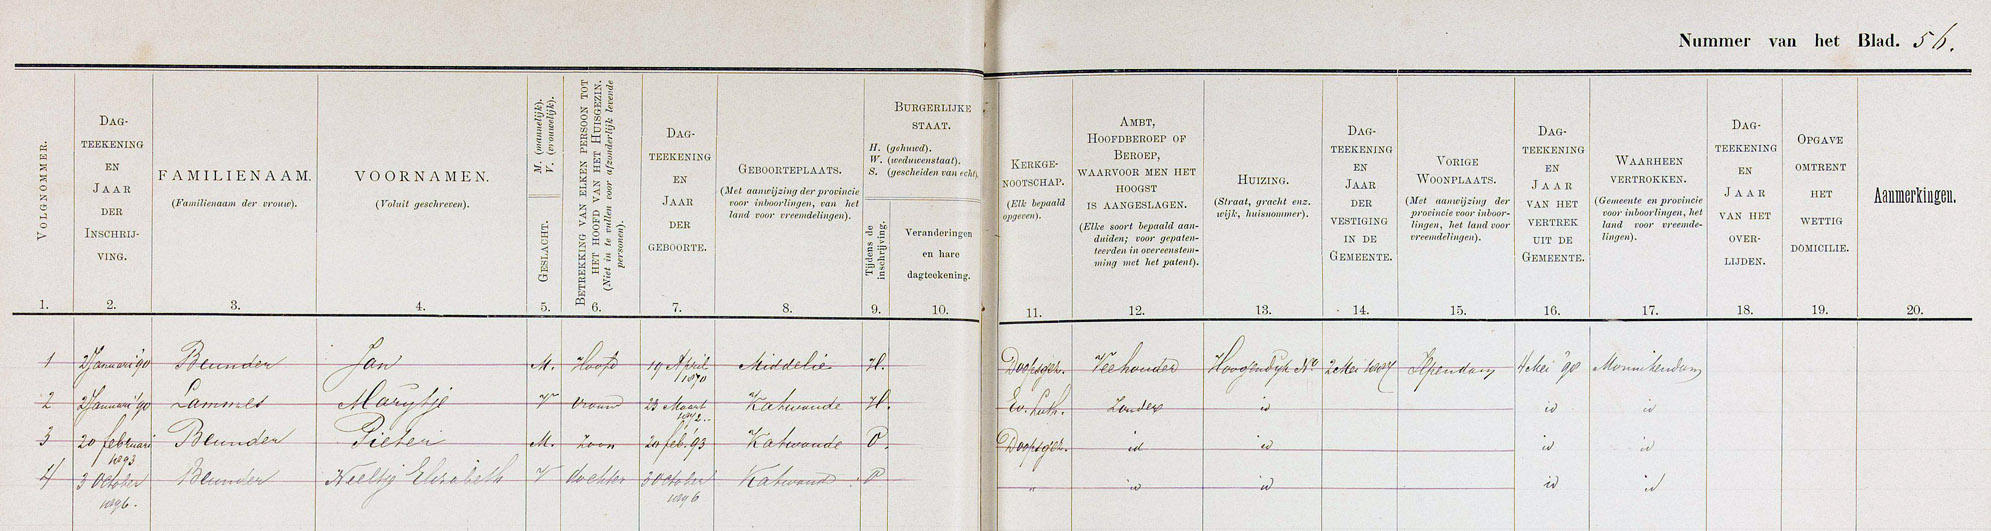 Nummer van het Blad. 56.
VOLGNOMMER.
1.
DAG-
TEEKENING
EN
JAAR
DER
INSCHRIJ-
VING.
2.
FAMILIENAAM.
(Familienaam der vrouw).
3.
VOORNAMEN.
(Voluit geschreven).
4.
M. (mannelijk).
V. (vrouwelijk).
GESLACHT.
5.
BETREKKING VAN ELKEN PERSOON TOT
HET HOOFD VAN HET HUISGEZIN.
(Niet in te vullen voor afzonderlijk levende
personen).
6.
DAG-
TEEKENING
EN
JAAR
DER
GEBOORTE.
7.
GEBOORTEPLAATS.
(Met aanwijzing der provincie
voor inboorlingen, van het
land voor vreemdelingen).
8.
BURGERLIJKE
STAAT.
H. (gehuwd).
W. (weduwenstaat).
S. (gescheiden van echt).
Tijdens de
inschrijving.
9.
Veranderingen
en hare
dagteekening.
10.
KERKGE-
NOOTSCHAP.
(Elk bepaald
opgeven).
11.
AMBT,
HOOFDBEROEP OF
BEROEP,
WAARVOOR MEN HET
HOOGST
IS AANGESLAGEN.
(Elke soort bepaald aan-
duiden; voor gepaten-
teerden in overeenstem-
ming met het patent).
12.
HUIZING.
(Straat, gracht enz.
wijk, huisnommer).
13.
DAG-
TEEKENING
EN
JAAR
DER
VESTIGING
IN DE
GEMEENTE.
14.
VORIGE
WOONPLAATS.
(Met aanwijzing der
provincie voor inboor-
lingen, het land voor
vreemdelingen).
15.
DAG-
TEEKENING
EN
JAAR
VAN HET
VERTREK
UIT DE
GEMEENTE.
16.
WAARHEEN
VERTROKKEN.
(Gemeente en provincie
voor inboorlingen, het
land voor vreemde-
lingen).
17.
DAG-
TEEKENING
EN
JAAR
VAN HET
OVER-
LIJDEN.
18.
OPGAVE
OMTRENT
HET
WETTIG
DOMICILIE.
19.
Aanmerkingen.
20.
1 2 Januari '90 Beunder Jan M. Hoofd 19 April 1870 Middelie H. Doopsgez. Veehouder Hoogendijk 2 Mei Ilpendam 4 Mei '98 Monnikendam
2 2 Januari '90 Lammes Marijtje V vrouw 23 Maart Katwoude H. Ev. Luth. Zonder id id id
3 20 februari 1893 Beunder Pieter M. zoon 20 feb. '93 Katwoude O. Doopsgez. id id id id
4 3 October 1896. Beunder Neeltje Elisabeth V dochter 3 October 1896 Katwoud O " id id id id